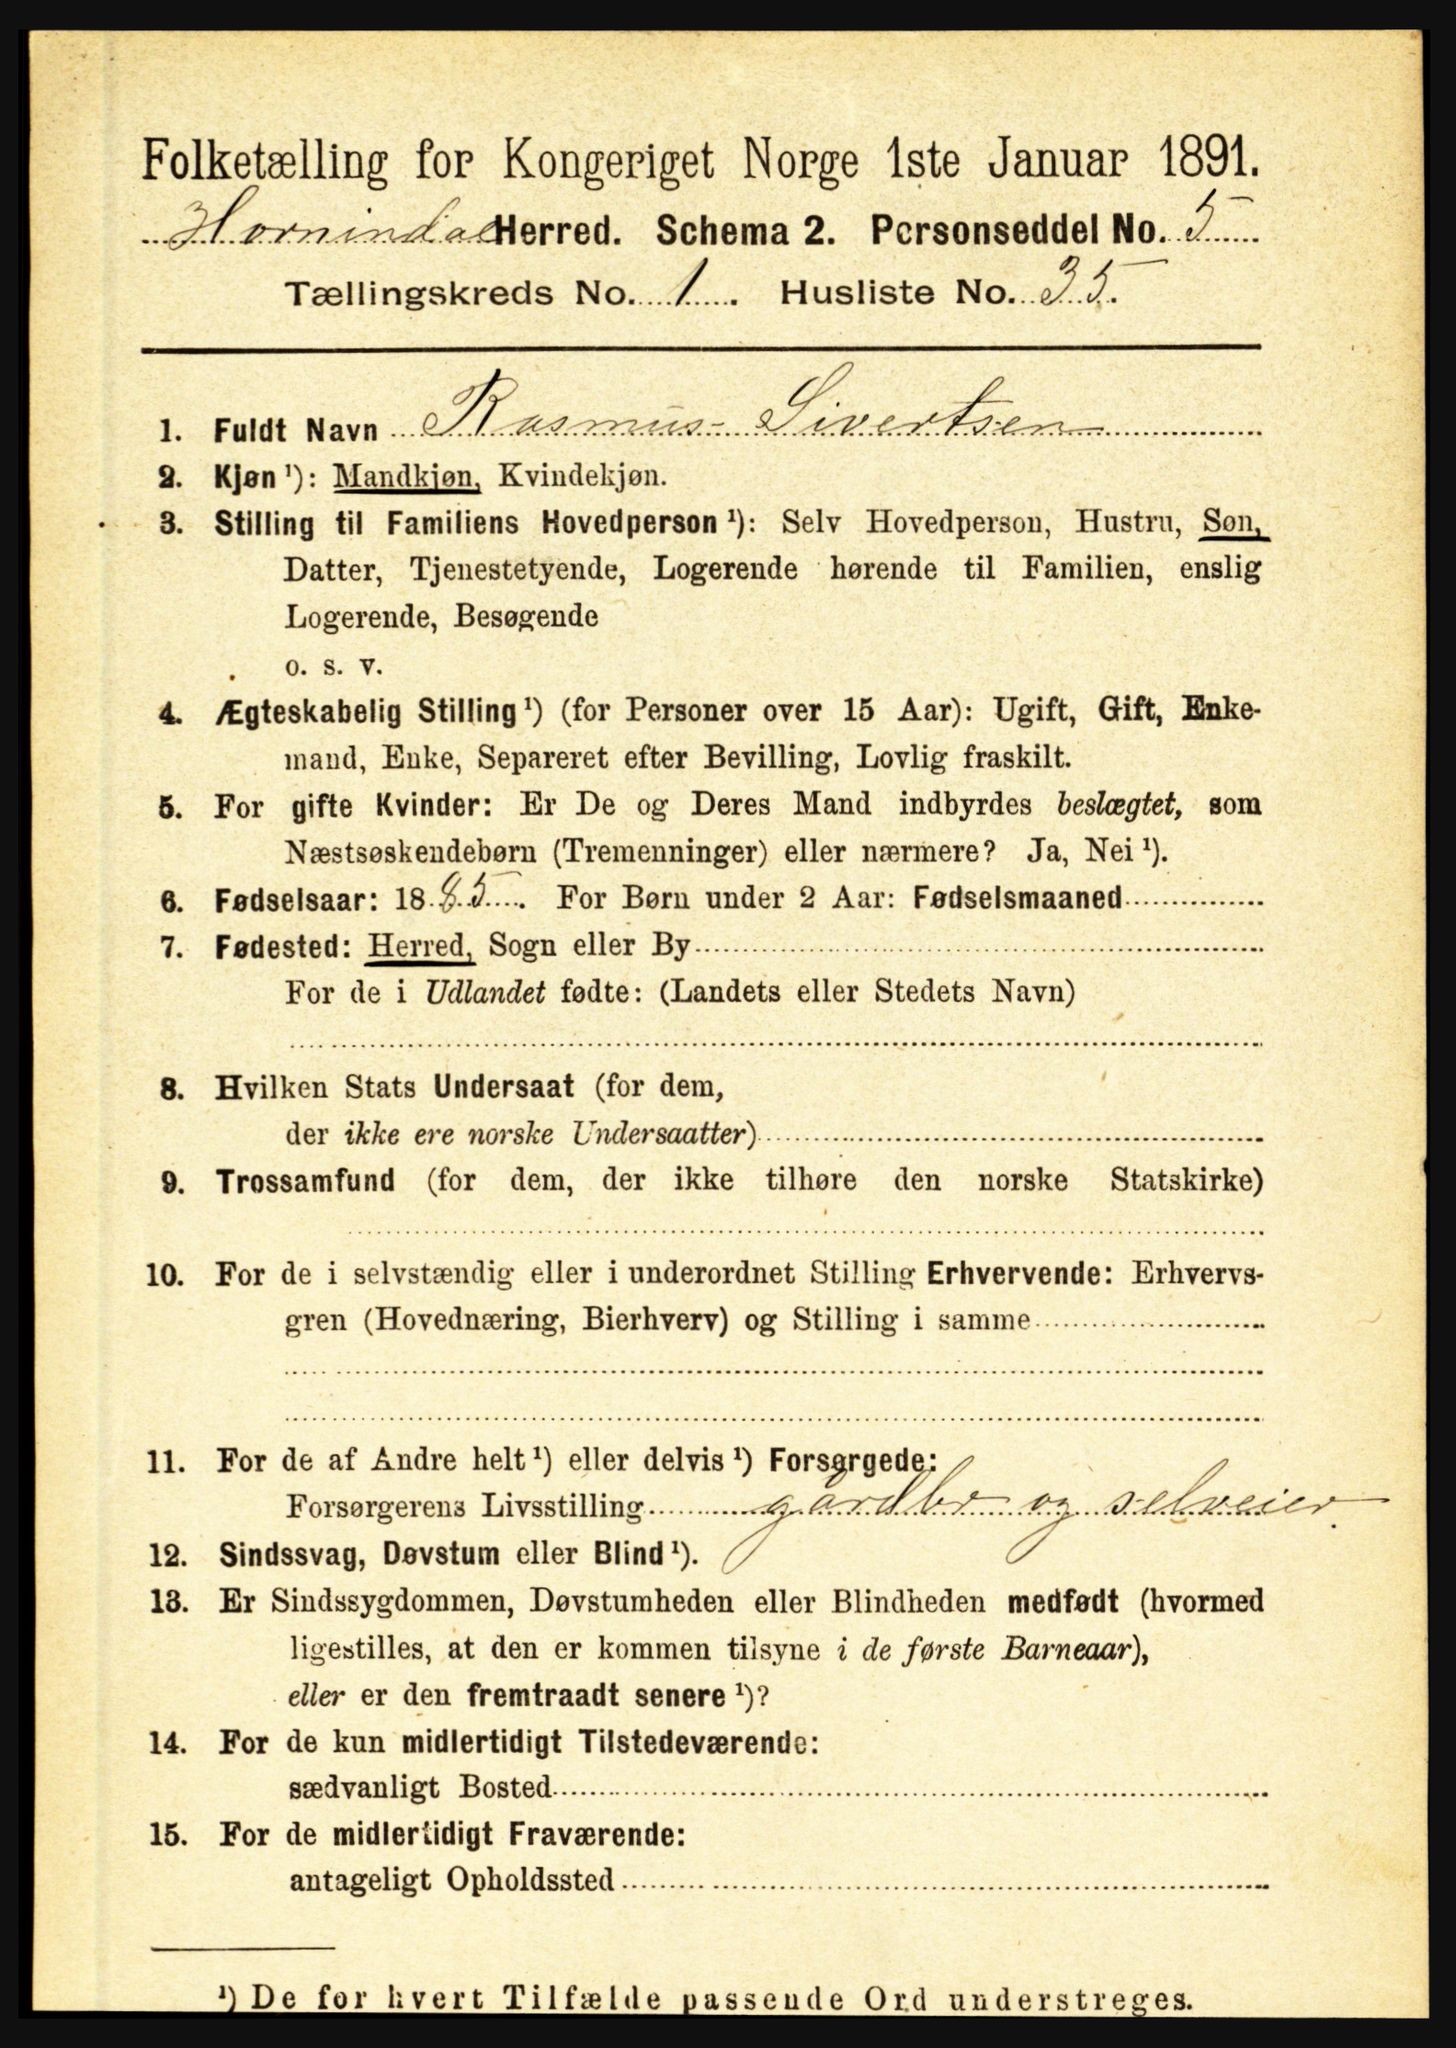 Folketælling for Kongeriget Norge 1ste Januar 1891.
Hornindal Herred. Schema 2. Personseddel No. 5
Tællingskreds No. 1. Husliste No. 35.
1. Fuldt Navn Rasmus Sivertsen
2. Kjøn ¹): Mandkjøn, Kvindekjøn.
3. Stilling til Familiens Hovedperson ¹): Selv Hovedperson, Hustru, Søn,
Datter, Tjenestetyende, Logerende hørende til Familien, enslig
Logerende, Besøgende
o. s. v.
4. Ægteskabelig Stilling ¹) (for Personer over 15 Aar): Ugift, Gift, Enke-
mand, Enke, Separeret efter Bevilling, Lovlig fraskilt.
5. For gifte Kvinder: Er De og Deres Mand indbyrdes beslægtet, som
Næstsøskendebørn (Tremenninger) eller nærmere? Ja, Nei ¹).
6. Fødselsaar: 1885. For Børn under 2 Aar: Fødselsmaaned
7. Fødested: Herred, Sogn eller By
For de i Udlandet fødte: (Landets eller Stedets Navn)
8. Hvilken Stats Undersaat (for dem,
der ikke ere norske Undersaatter)
9. Trossamfund (for dem, der ikke tilhøre den norske Statskirke)
10. For de i selvstændig eller i underordnet Stilling Erhvervende: Erhvervs-
gren (Hovednæring, Bierhverv) og Stilling i samme
11. For de af Andre helt ¹) eller delvis ¹) Forsørgede:
Forsørgerens Livsstilling gårdbr og selveier
12. Sindssvag, Døvstum eller Blind ¹).
13. Er Sindssygdommen, Døvstumheden eller Blindheden medfødt (hvormed
ligestilles, at den er kommen tilsyne i de første Barneaar),
eller er den fremtraadt senere ¹)?
14. For de kun midlertidigt Tilstedeværende:
sædvanligt Bosted
15. For de midlertidigt Fraværende:
antageligt Opholdssted
¹) De for hvert Tilfælde passende Ord understreges.